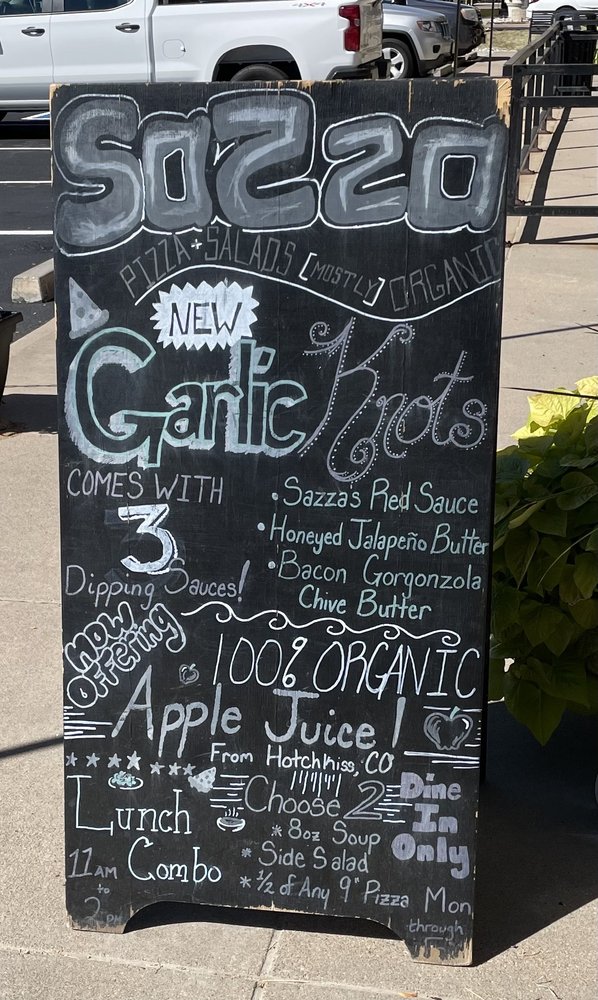 SaZza
PIZZA + SALADS [MOSTLY] ORGANIC
NEW
Garlic Knots
COMES WITH
3
Dipping Sauces!
• Sazzas Red Sauce
• Honeyed Jalapeño Butter
• Bacon Gorgonzola
Chive Butter
NOW
OFFering
100% ORGANIC
Apple Juice!
From Hotchkiss, CO
Lunch
Combo
11 AM
to
2 PM
Choose 2
* 8oz Soup
* Side Salad
* 1/2 of Any 9" Pizza
Dine
In
Only
Mon
through